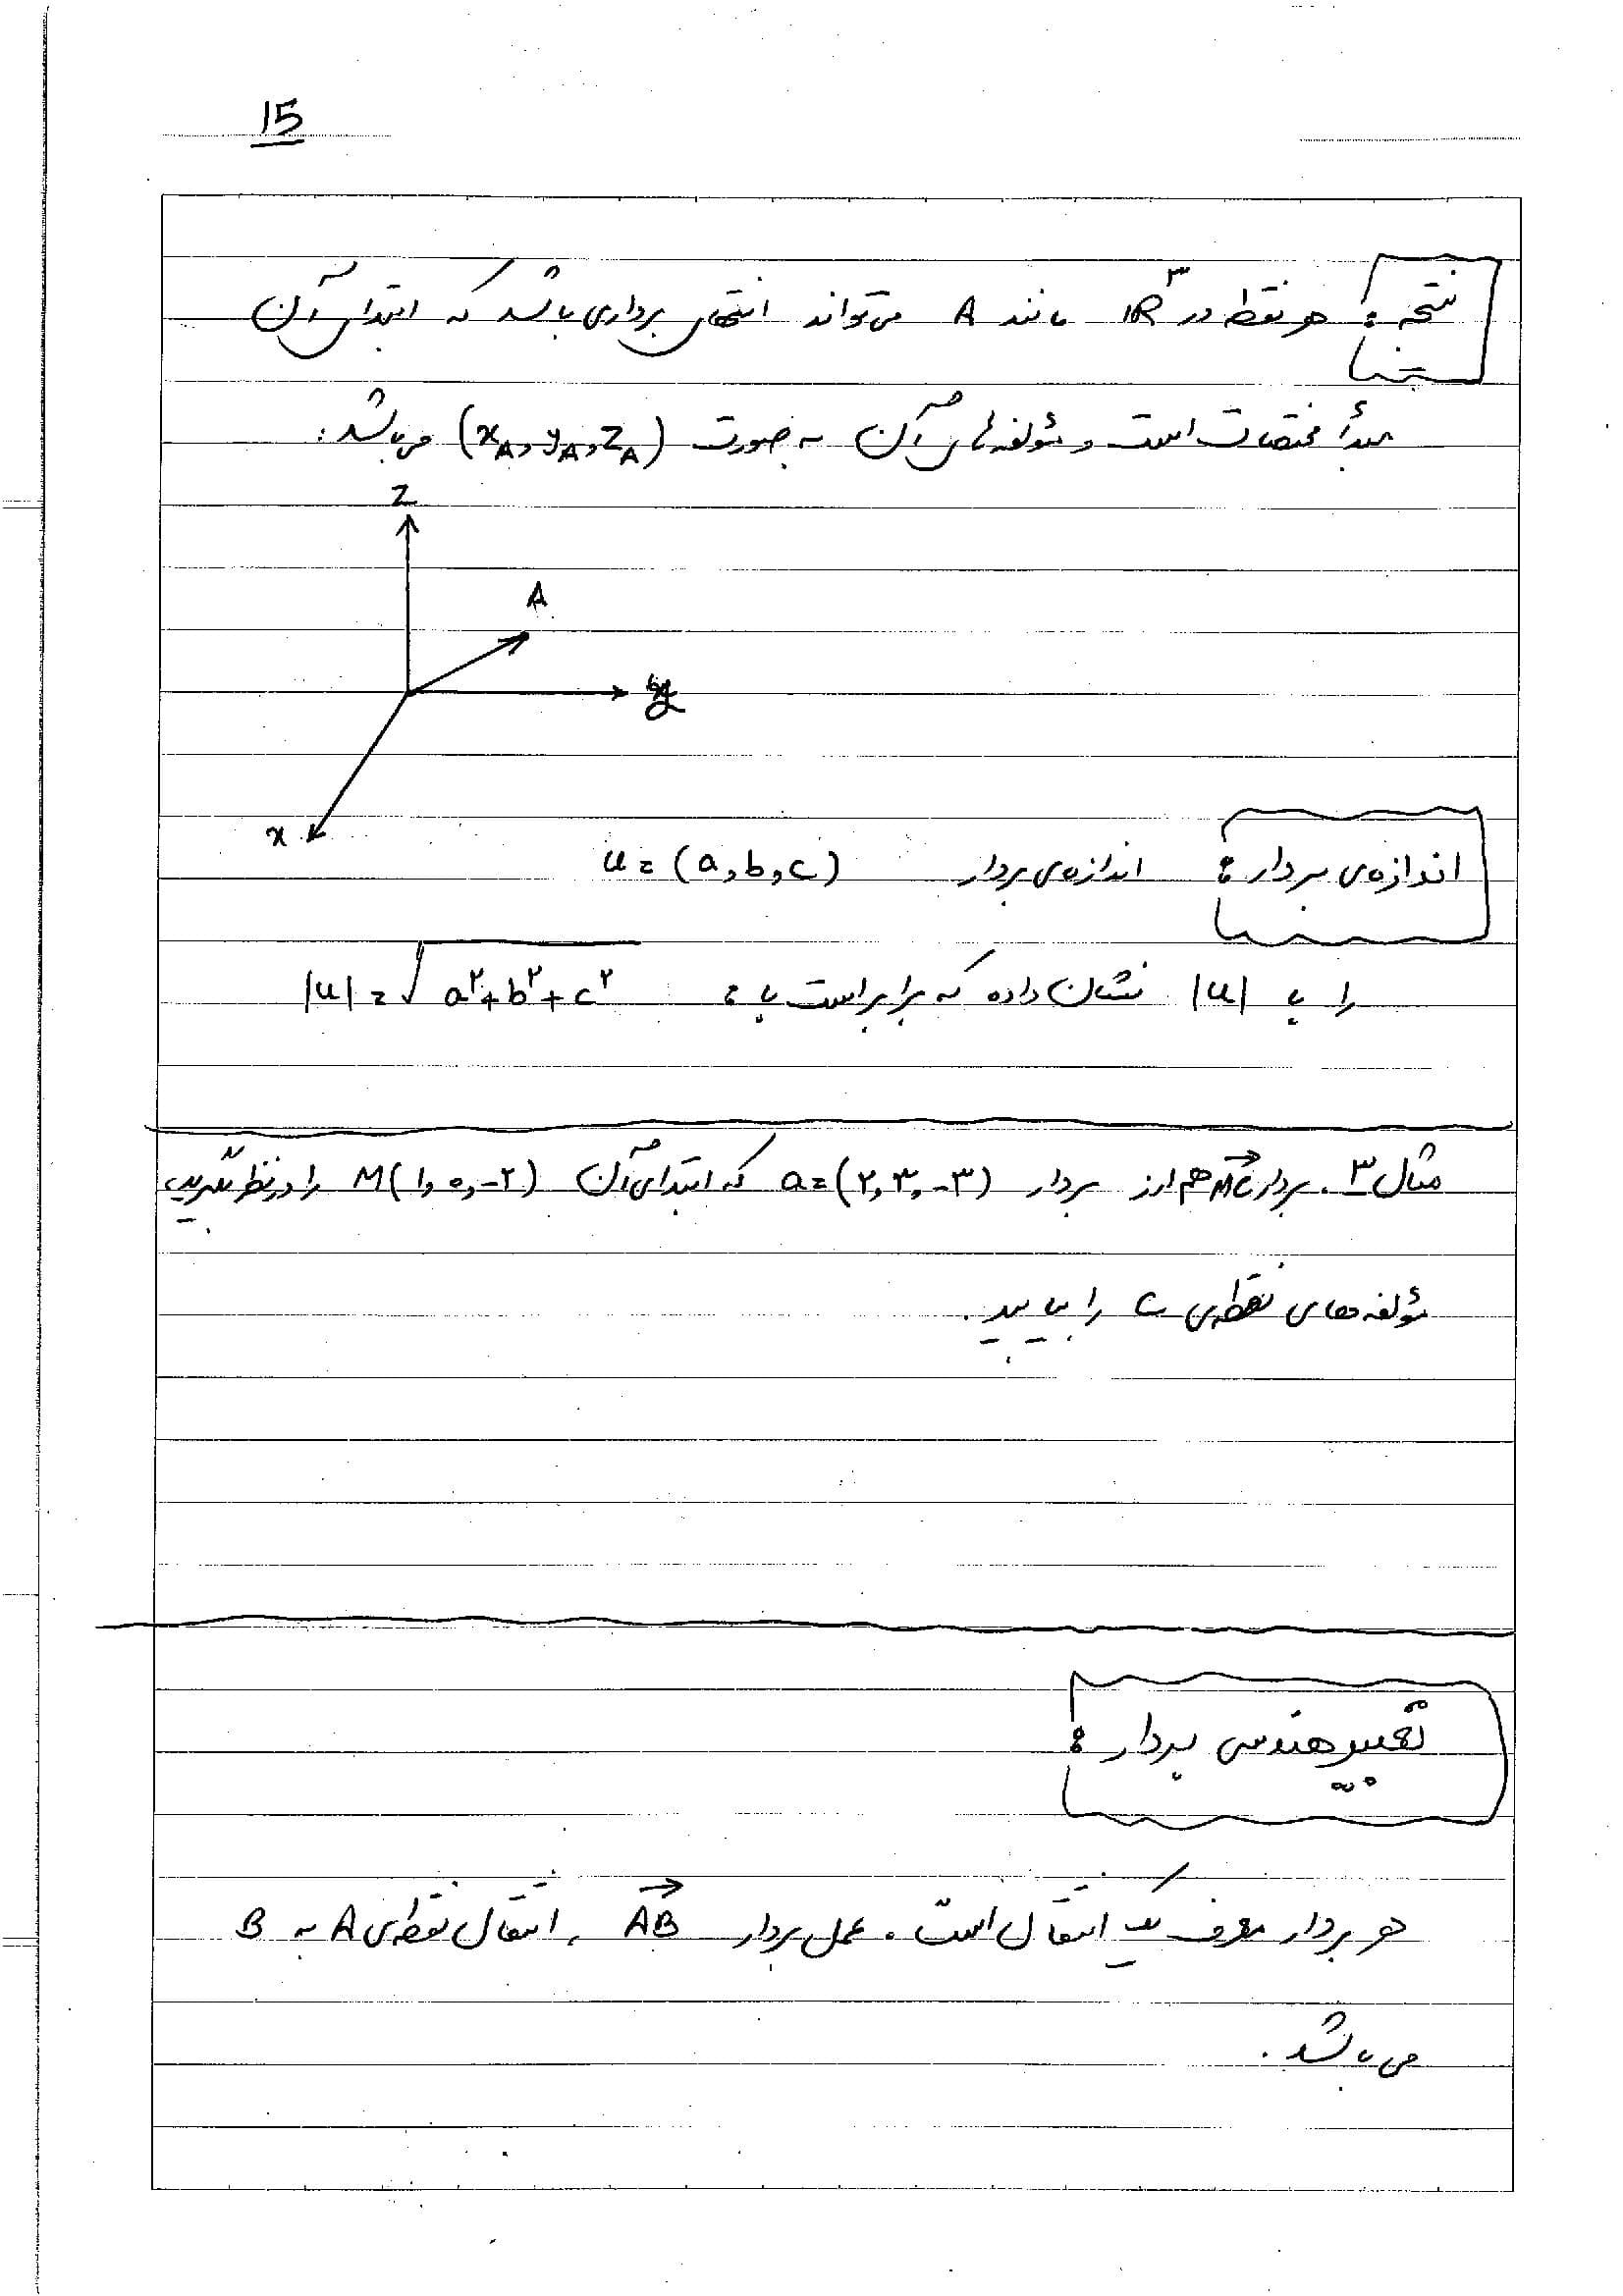 15
نتیجه: هر نقطه در IR³ مانند A می‌تواند انتهای برداری باشد که ابتدای آن
مبدأ مختصات است و مؤلفه‌های آن به صورت (x_A, y_A, z_A) می‌باشد:
z
A
y
x
اندازه‌ی بردار: اندازه‌ی بردار u = (a, b, c)
را با |u| نشان داده که برابر است با: |u| = √a²+b²+c²
مثال ۳. بردار MC هم ارز بردار a = (۲, ۳, -۳) که ابتدای آن M(۱, ۰, -۲) را در نظر بگیرید
مؤلفه‌های نقطه‌ی C را بیابید.
تعبیر هندسی بردار:
هر بردار معرف یک انتقال است. عمل بردار AB، انتقال نقطه‌ی A به B
می‌باشد.